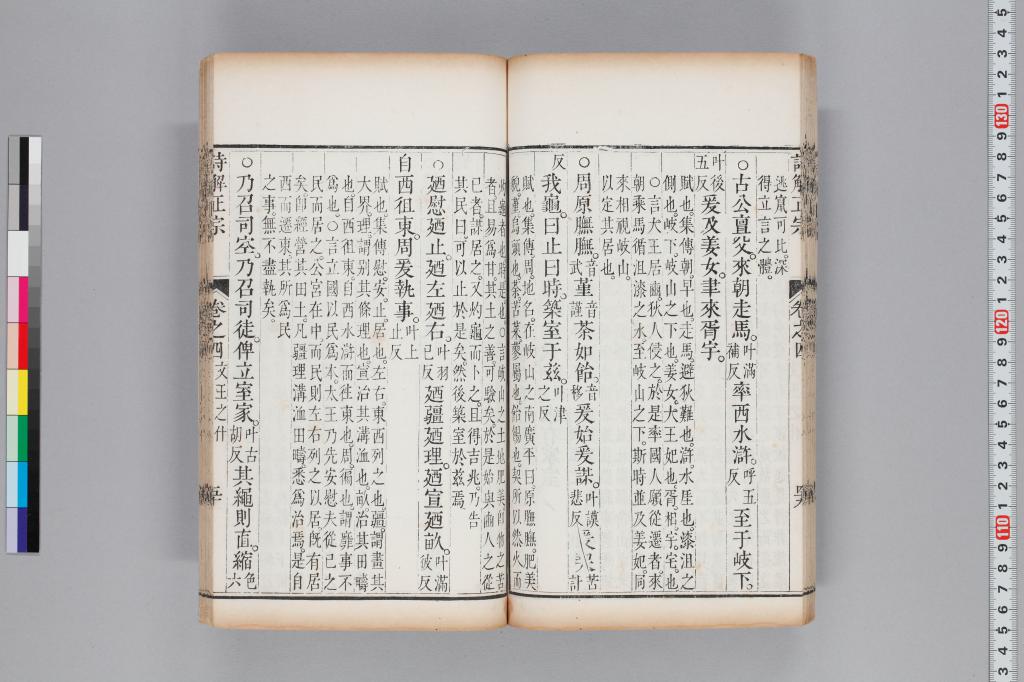 逃窟可比深
得立言之體
○古公亶父來朝走馬叶滿補反率西水滸呼五反至于岐下
叶後五反爰及姜女聿來胥宇
賦也集傳朝早也走馬避狄難也滸水厓也漆沮之
側也岐下岐山之下也姜女大王妃也胥相宇宅也
○言大王居豳狄人侵之於是率國人願從遷者來
朝乘馬循沮漆之水至岐山之下斯時並及姜妃同
來相視岐山
以定其居也
○周原膴膴音武菫音謹荼如飴音移爰始爰謀叶謨悲反
反我龜曰止曰時築室于茲叶津之反
賦也集傳周地名在岐山之南廣平曰原膴膴肥美
其民曰可以止於是矣然後築室於茲焉
已者謀居之又約龜而卜之且得吉兆乃告
者且易爲甘其土之善可驗矣於是始與豳人之從
○廼慰廼止廼左廼右叶羽已反廼疆廼理廼宣廼畝叶滿彼反
自西徂東周爰執事叶上止反
賦也集傳慰安止居也左右東西列之也疆謂畫其
大界理謂別其條理也宣治其溝洫也畝治其田疇
也自西徂東自西水滸而徃東也周徧也謂靡事不
爲也○言立國以民爲本太王乃先安慰夫從已之
民而居之公宮在中而民則左右列之以居旣有居
矣卽經營其田土凡疆理溝洫田疇悉爲治焉是自
西而遷東其所爲民
之事無不盡執矣
○乃召司空乃召司徒俾立室家叶古胡反其繩則直縮色六
詩解正宗
卷之四
文王之什